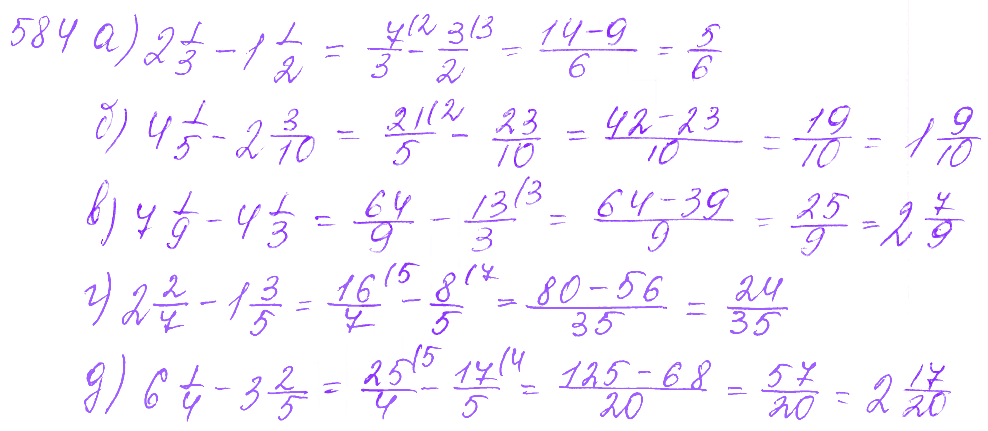 584 а) 2 1/3 - 1 1/2 = 7/3 (2 - 3/2 (3 = 14-9/6 = 5/6
б) 4 1/5 - 2 3/10 = 21/5 (2 - 23/10 = 42-23/10 = 19/10 = 1 9/10
в) 7 1/9 - 4 1/3 = 64/9 - 13/3 (3 = 64-39/9 = 25/9 = 2 7/9
г) 2 2/7 - 1 3/5 = 16/7 (5 - 8/5 (7 = 80-56/35 = 24/35
д) 6 1/4 - 3 2/5 = 25/4 (5 - 17/5 (4 = 125-68/20 = 57/20 = 2 17/20